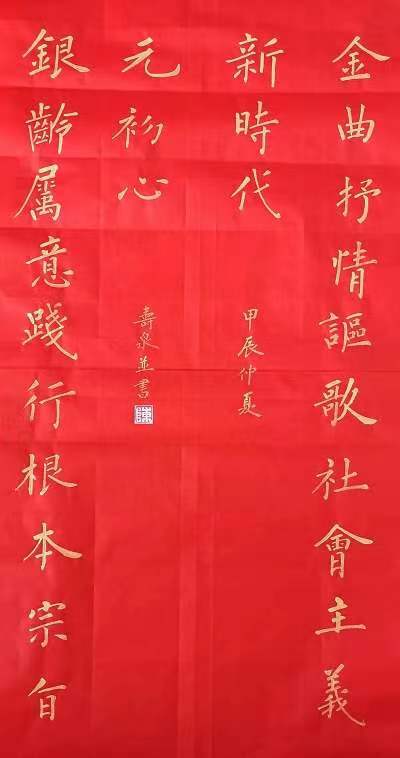 金曲抒情謳歌社會主義
新時代
甲辰仲夏
銀齡屬意踐行根本宗旨
元初心
壽泉並書
陳